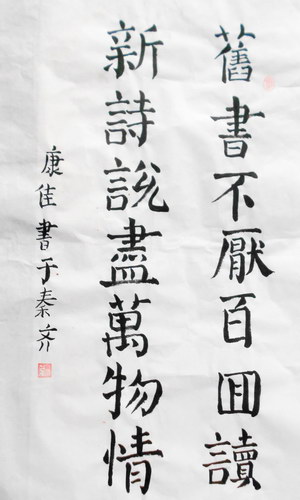 舊書不厭百囬讀
新詩說盡萬物情
康佳書于秦齐